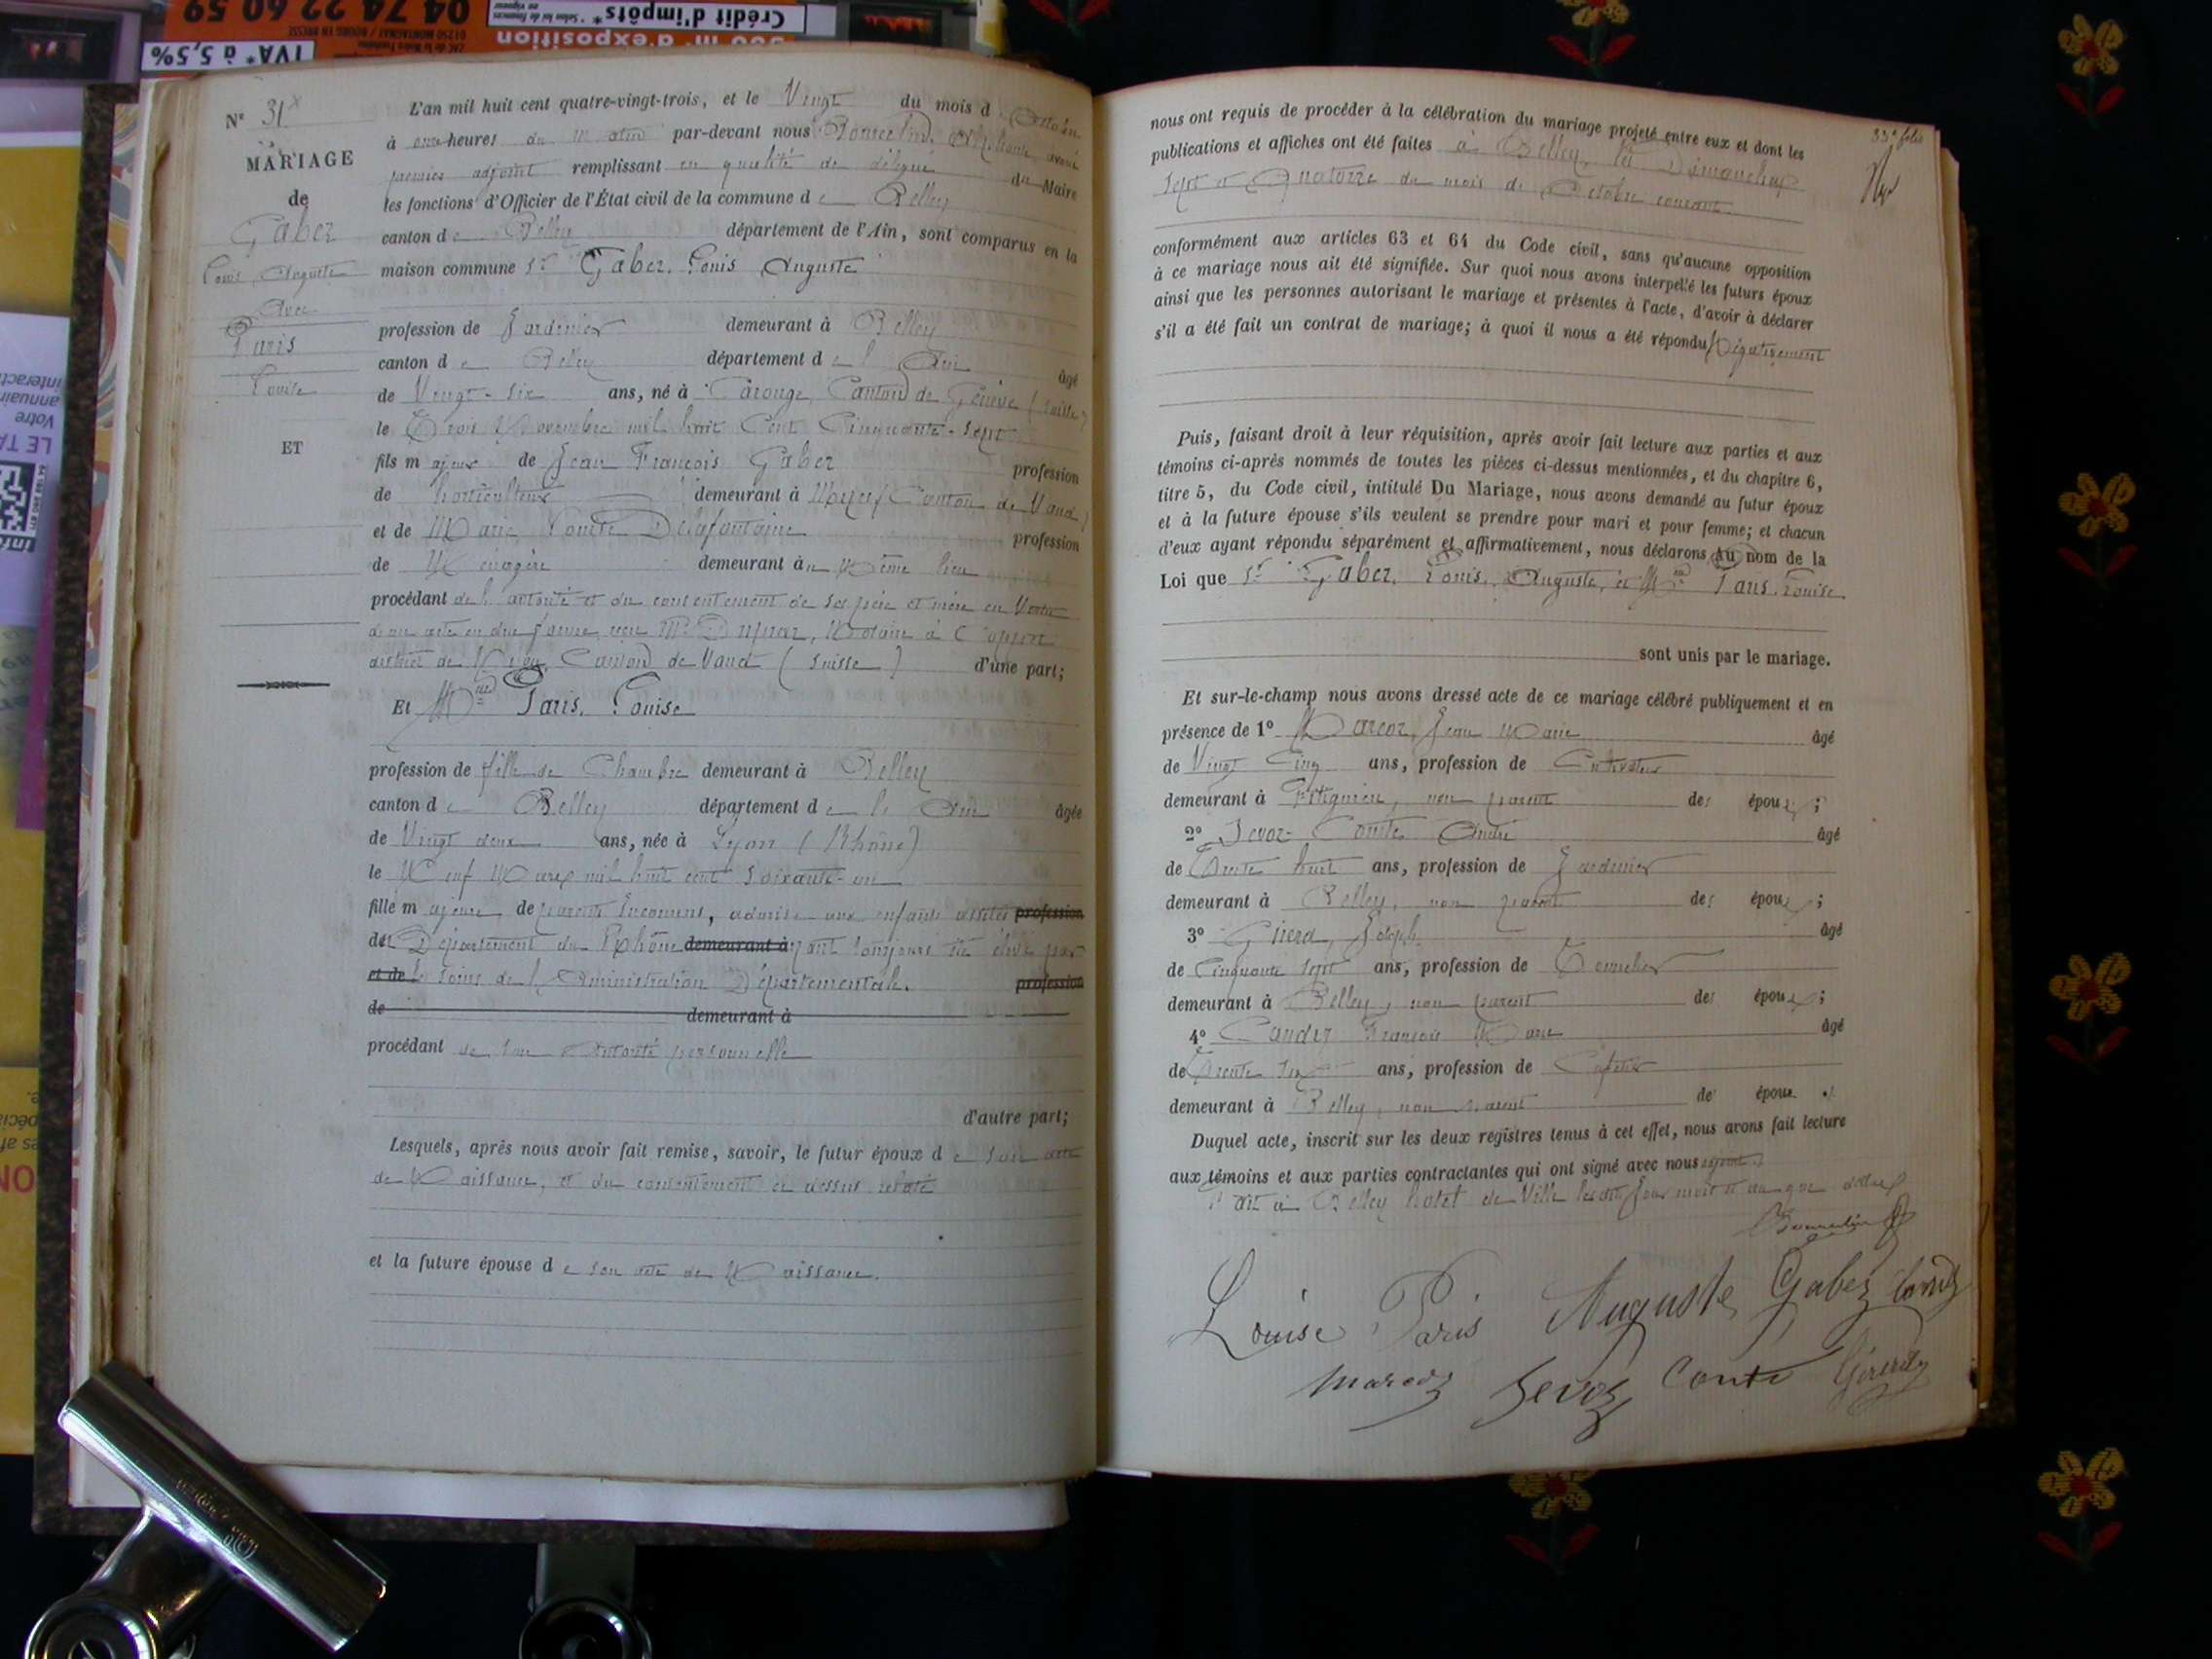 04 74 22 60 59
01250 MONTAGNAT / BOURG EN BRESSE
TVA* à 5,5%
m² d'exposition
Crédit d'impôts*
* Selon loi de finances en vigueur
Votre
annuaire
interacti
LE TA
N° 31
MARIAGE
de
Gabez
Louis Auguste
Avec
Paris
Louise
ET
L'an mil huit cent quatre-vingt-trois, et le Vingt du mois d'Octobre
à onze heures du matin par-devant nous avoué
premier adjoint remplissant en qualité de délégué du Maire
les fonctions d'Officier de l'État civil de la commune de Belley
canton de Belley département de l'Ain, sont comparus en la
maison commune Sr Gabez, Louis Auguste
profession de Jardinier demeurant à Belley
canton de Belley département de l'Ain âgé
de Vingt-six ans, né à Carouge, Canton de Genève (Suisse)
le Trois Novembre mil huit Cent Cinquante-sept
fils majeur de Jean François Gabez profession
de horticulteur demeurant à Canton de Vaud)
et de Marie Louise Delafontaine profession
de Ménagère demeurant au même lieu
procédant de l'autorité et du consentement de ses père et mère en Vertu
d'un acte en due forme, reçu Me Dupraz, Notaire à Coppet
district de Nyon, Canton de Vaud (Suisse) d'une part;
Et Mlle Paris, Louise
profession de fille de Chambre demeurant à Belley
canton de Belley département de l'Ain âgée
de Vingt deux ans, née à Lyon (Rhône)
le Neuf Mars mil huit cent soixante-un
fille majeure de parents inconnus, admise aux enfants assistés profession
du Département du Rhône demeurant à ayant toujours été élevée par
et de les soins de l'Administration Départementale. profession
de demeurant à
procédant de son autorité personnelle
d'autre part;
Lesquels, après nous avoir fait remise, savoir, le futur époux de son acte
de Naissance, et du consentement ci dessus relaté
et la future épouse de son acte de Naissance.
33e folio
nous ont requis de procéder à la célébration du mariage projeté entre eux et dont les
publications et affiches ont été faites à Belley, les Dimanches
sept et Quatorze du mois de Octobre courant
conformément aux articles 63 et 64 du Code civil, sans qu'aucune opposition
à ce mariage nous ait été signifiée. Sur quoi nous avons interpellé les futurs époux
ainsi que les personnes autorisant le mariage et présentes à l'acte, d'avoir à déclarer
s'il a été fait un contrat de mariage; à quoi il nous a été répondu Négativement
Puis, faisant droit à leur réquisition, après avoir fait lecture aux parties et aux
témoins ci-après nommés de toutes les pièces ci-dessus mentionnées, et du chapitre 6,
titre 5, du Code civil, intitulé Du Mariage, nous avons demandé au futur époux
et à la future épouse s'ils veulent se prendre pour mari et pour femme; et chacun
d'eux ayant répondu séparément et affirmativement, nous déclarons Au nom de la
Loi que Sr Gabez, Louis, Auguste, et Mlle Paris, Louise
sont unis par le mariage.
Et sur-le-champ nous avons dressé acte de ce mariage célébré publiquement et en
présence de 1° Marcoz, Jean Marie âgé
de Vingt Cinq ans, profession de Cultivateur
demeurant à non parent des époux;
2° Sevoz-Conte André âgé
de Trente huit ans, profession de Jardinier
demeurant à Belley, non parent des époux;
3° Joseph âgé
de Cinquante sept ans, profession de Tonnelier
demeurant à Belley, non parent des époux;
4° François Marie âgé
de Trente six ans, profession de Cafetier
demeurant à Belley, non parent des époux.
Duquel acte, inscrit sur les deux registres tenus à cet effet, nous avons fait lecture
aux témoins et aux parties contractantes qui ont signé avec nous adjoint.
Fait à Belley hôtel de Ville lesdits jour mois et an que dessus
Louise Paris Auguste Gabez
Marcoz Sevoz Conte